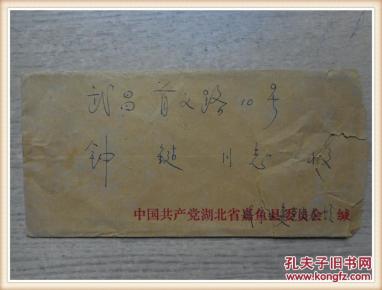 武昌首义路10号
钟 同志 收
中国共产党湖北省嘉鱼县委员会 缄
孔夫子旧书网